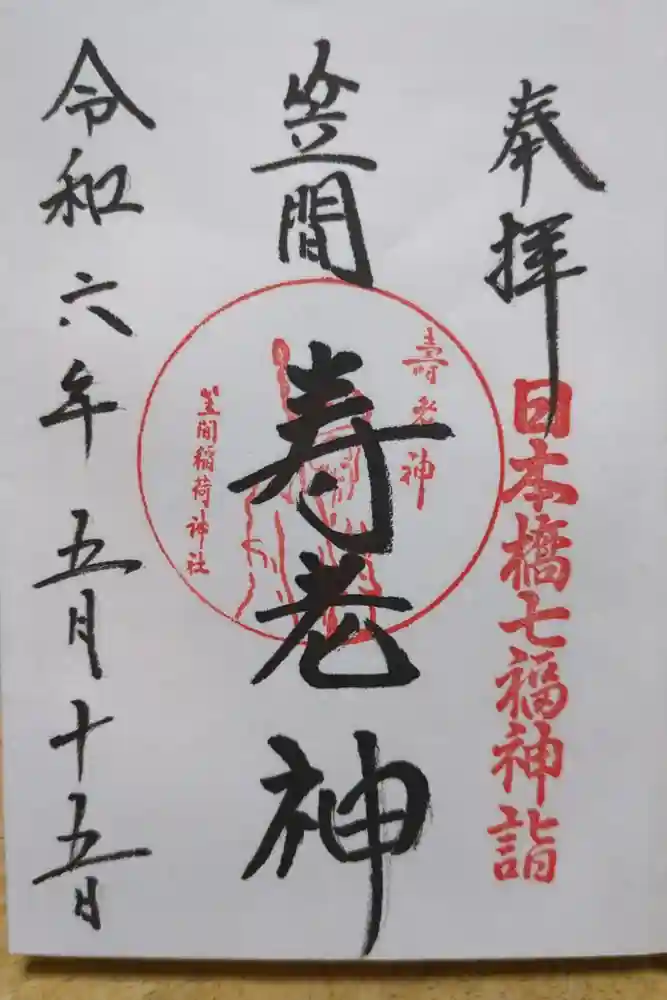 奉拝
日本橋七福神詣
笠間
寿老神
壽老神
笠間稲荷神社
令和六年五月十五日